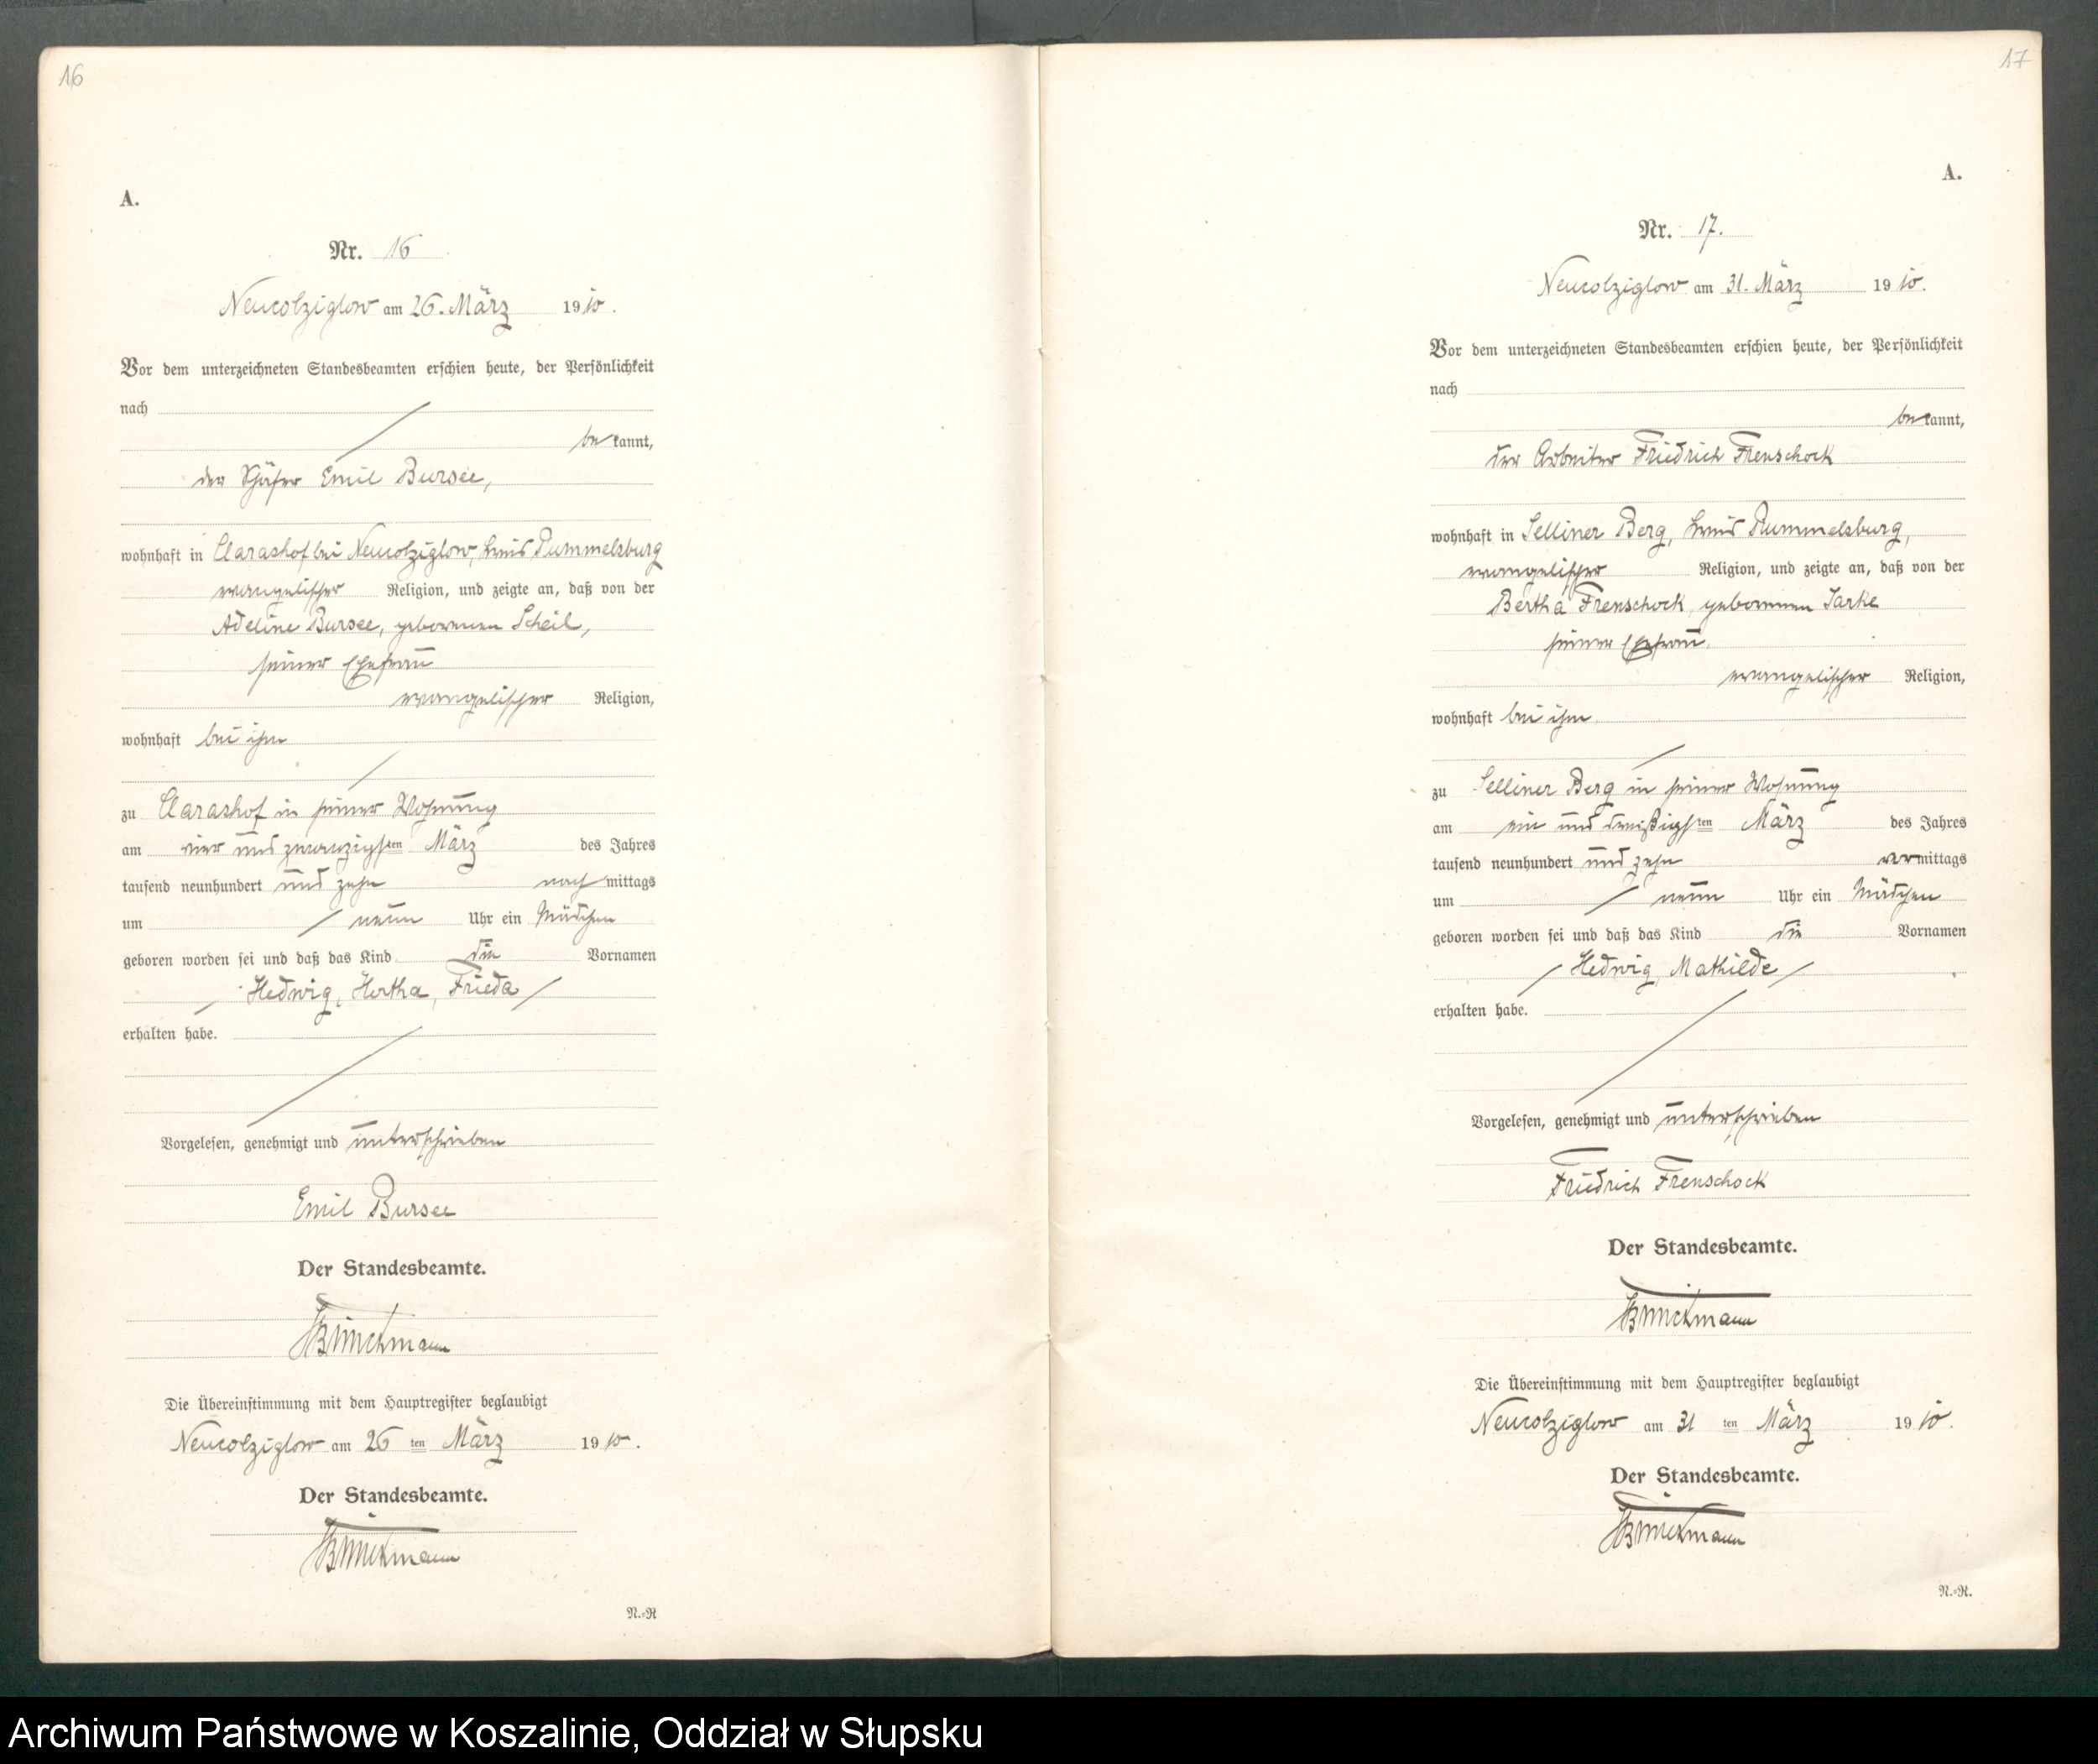 16
A.
Nr. 16
Neucolziglow am 26. März 1910.
Vor dem unterzeichneten Standesbeamten erschien heute, der Persönlichkeit
nach
bekannt,
der Schäfer Emil Bursee,
wohnhaft in Clarashof bei Neucolziglow, Kreis Rummelsburg
evangelischer Religion, und zeigte an, daß von der
Adeline Bursee, geborenen Scheil,
seiner Ehefrau
evangelischer Religion,
wohnhaft bei ihm
zu Clarashof in seiner Wohnung
am vier und zwanzigsten März des Jahres
tausend neunhundert und zehn nachmittags
um / neun Uhr ein Mädchen
geboren worden sei und daß das Kind die Vornamen
Hedwig, Hertha, Frieda
erhalten habe.
Vorgelesen, genehmigt und unterschrieben
Emil Bursee
Der Standesbeamte.
Die Übereinstimmung mit dem Hauptregister beglaubigt
Neucolziglow am 26 ten März 1910.
Der Standesbeamte.
N.-R
17
A.
Nr. 17.
Neucolziglow am 31. März 1910.
Vor dem unterzeichneten Standesbeamten erschien heute, der Persönlichkeit
nach
bekannt,
der Arbeiter Friedrich Frenschock
wohnhaft in Selliner Berg, Kreis Rummelsburg,
evangelischer Religion, und zeigte an, daß von der
Bertha Frenschock, geborenen Tarke
seiner Ehefrau.
evangelischer Religion,
wohnhaft bei ihm
zu Selliner Berg in seiner Wohnung
am ein und dreißigsten März des Jahres
tausend neunhundert und zehn vormittags
um / neun Uhr ein Mädchen
geboren worden sei und daß das Kind die Vornamen
Hedwig, Mathilde
erhalten habe.
Vorgelesen, genehmigt und unterschrieben
Friedrich Frenschock
Der Standesbeamte.
Die Übereinstimmung mit dem Hauptregister beglaubigt
Neucolziglow am 31 ten März 1910.
Der Standesbeamte.
N.-R.
Archiwum Państwowe w Koszalinie, Oddział w Słupsku